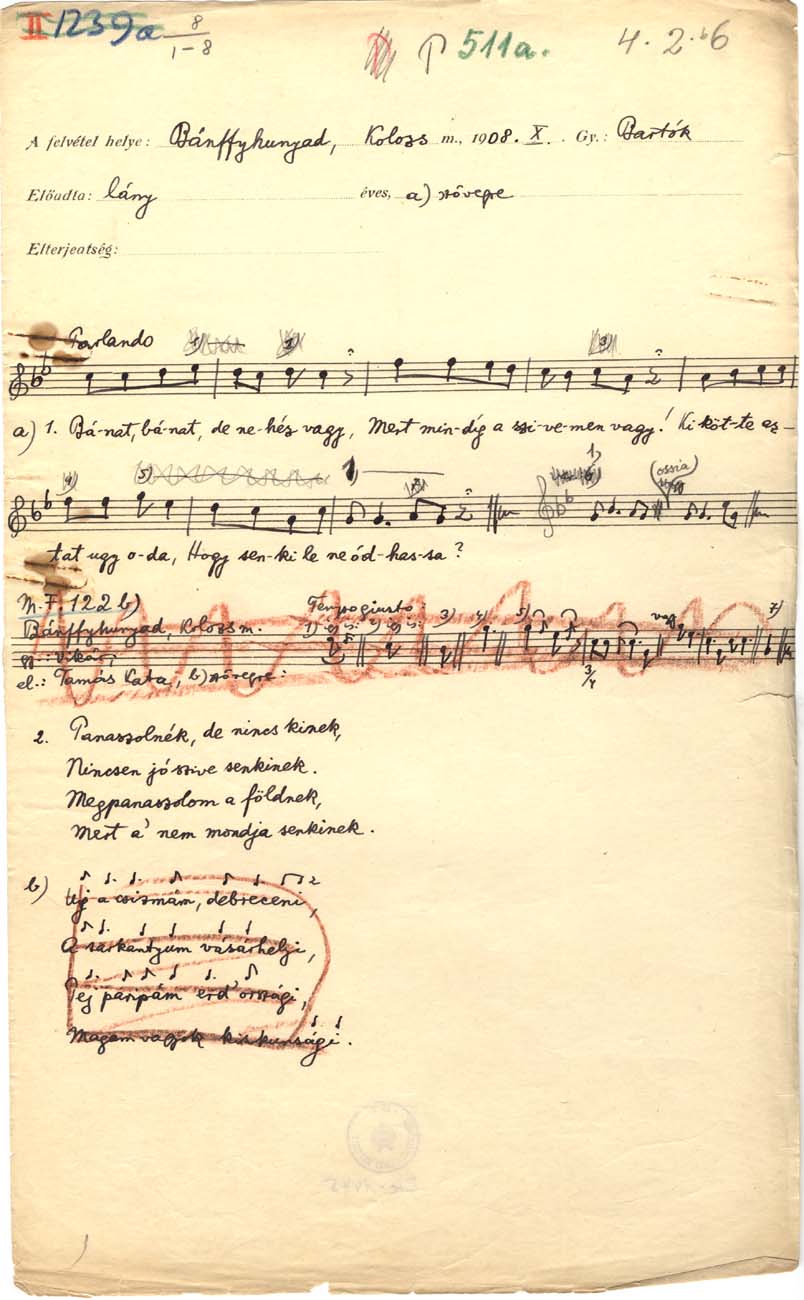 II 1239a 8
1-8
511a.
4. 2. 6
A felvétel helye: Bánffyhunyad, Kolozs m., 1908. X. Gy.: Bartók
Előadta: lány éves, a) szövegre
Elterjeatség:
Parlando 1) 2) 3)
a) 1. Bá-nat, bá-nat, de ne-héz vagy, Mert min-díg a szi-ve-men vagy! Ki köt-te az-
4) 5) 1) (ossia)
tat ugy o-da, Hogy sen-ki le ne ód-has-sa?
M.F. 122 b) Tempo giusto:
Bánffyhunyad, Kolozs m. 1) 2) 3) 4) 5) vagy 7)
gy.: Vikár; 3/4
el.: Tamás Kata, b) szövegre:
2. Panaszolnék, de nincs kinek,
Nincsen jó szive senkinek.
Megpanaszolom a földnek,
Mert a' nem mondja senkinek.
b)
Uj a csizmám, debreceni,
A sarkantyum vásárhelyi,
Pej paripám erd'országi,
Magam vagyok kiskunsági.